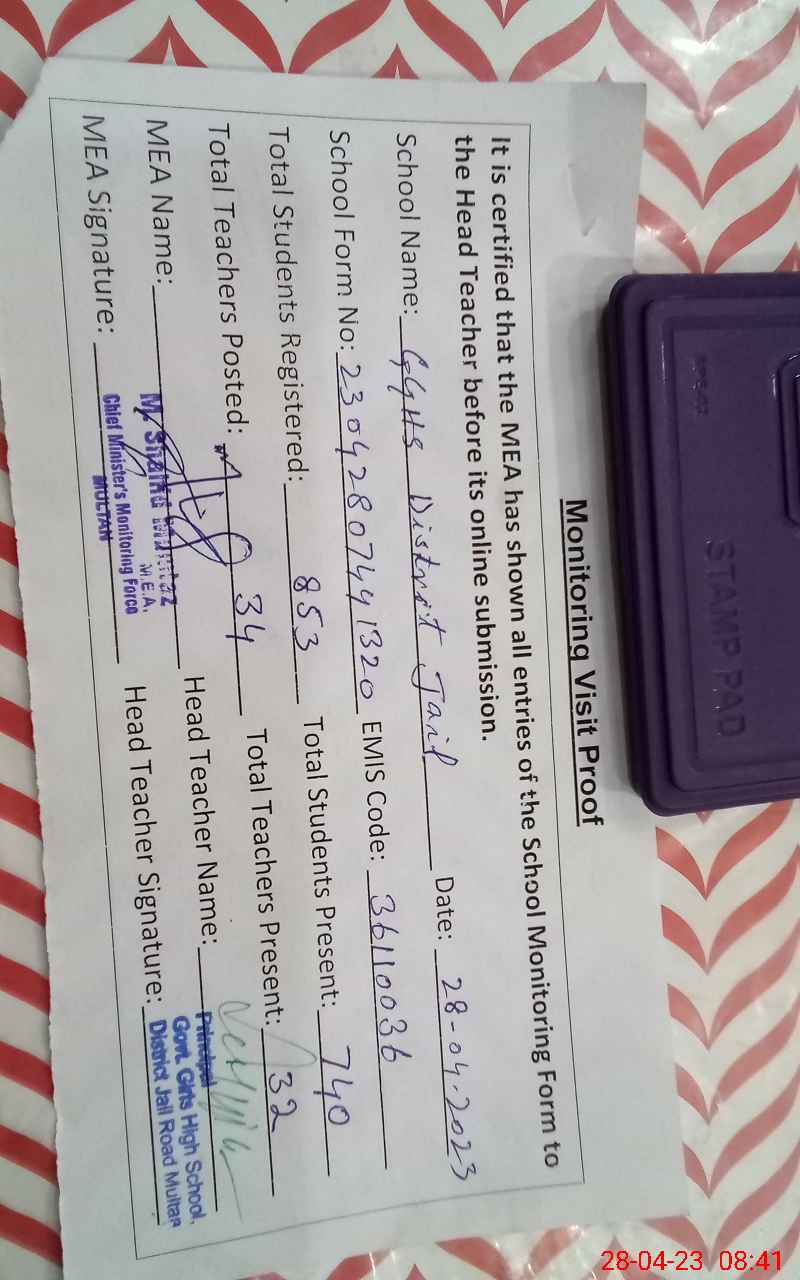 Monitoring Visit Proof
It is certified that the MEA has shown all entries of the School Monitoring Form to
the Head Teacher before its online submission.
School Name: GGHS District Jail Date: 28-04-2023
School Form No: 230428074441320 EMIS Code: 36110036
Total Students Registered: 853 Total Students Present: 740
Total Teachers Posted: 34 Total Teachers Present: 32
MEA Name: Head Teacher Name:
MEA Signature: Head Teacher Signature:
M.E.A.
Chief Minister's Monitoring Force
MULTAN
Principal
Govt. Girls High School,
District Jail Road Multan
STAMP PAD
28-04-23 08:41